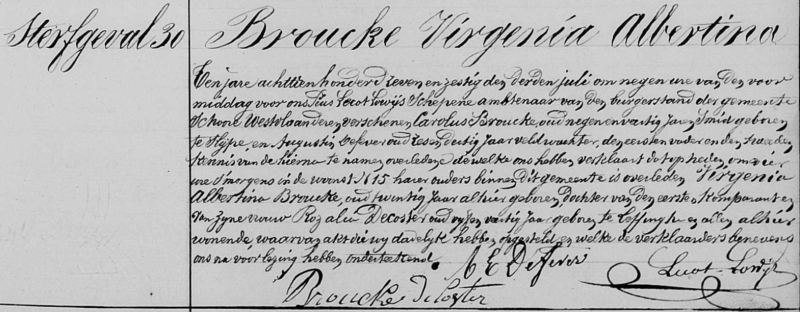 Sterfgeval 30
Broucke Virgenia Albertina
Een jare achttien honderd zeven en zestig den derden juli om negen ure van den voor
middag voor ons Pius Lecot Lowijs Schepene ambtenaar van den burgerstand der gemeente
Schoore Westvlaanderen verschenen Carolus Broucke, oud negen en vartig Jaren Smid geboren
te Slype, en Augustin Defever oud zes en dertig Jaar veldwachter, den eersten vader en den tweeden
kennis van de hierna te namen overledene de welke ons hebben verklaart dat op heden om vier
ure s'morgens in de woonst N. 15 harer ouders binnen dit gemeente is overleden Virgenia
Albertina Broucke, oud twintig Jaar alhier geboren, dochter van den eersten Komparant en
van zyne vrouw Rozalia Decoster oud vyf en vartig Jaar geboren te Leffinghe en allen alhier
wonende, waar van akt die wy dadelyk hebben opgesteld en welke de verklaarders benevens
ons na voorlezing hebben onderteekend.
Defever
Broucke DeCoster
Lecot-Lowijs